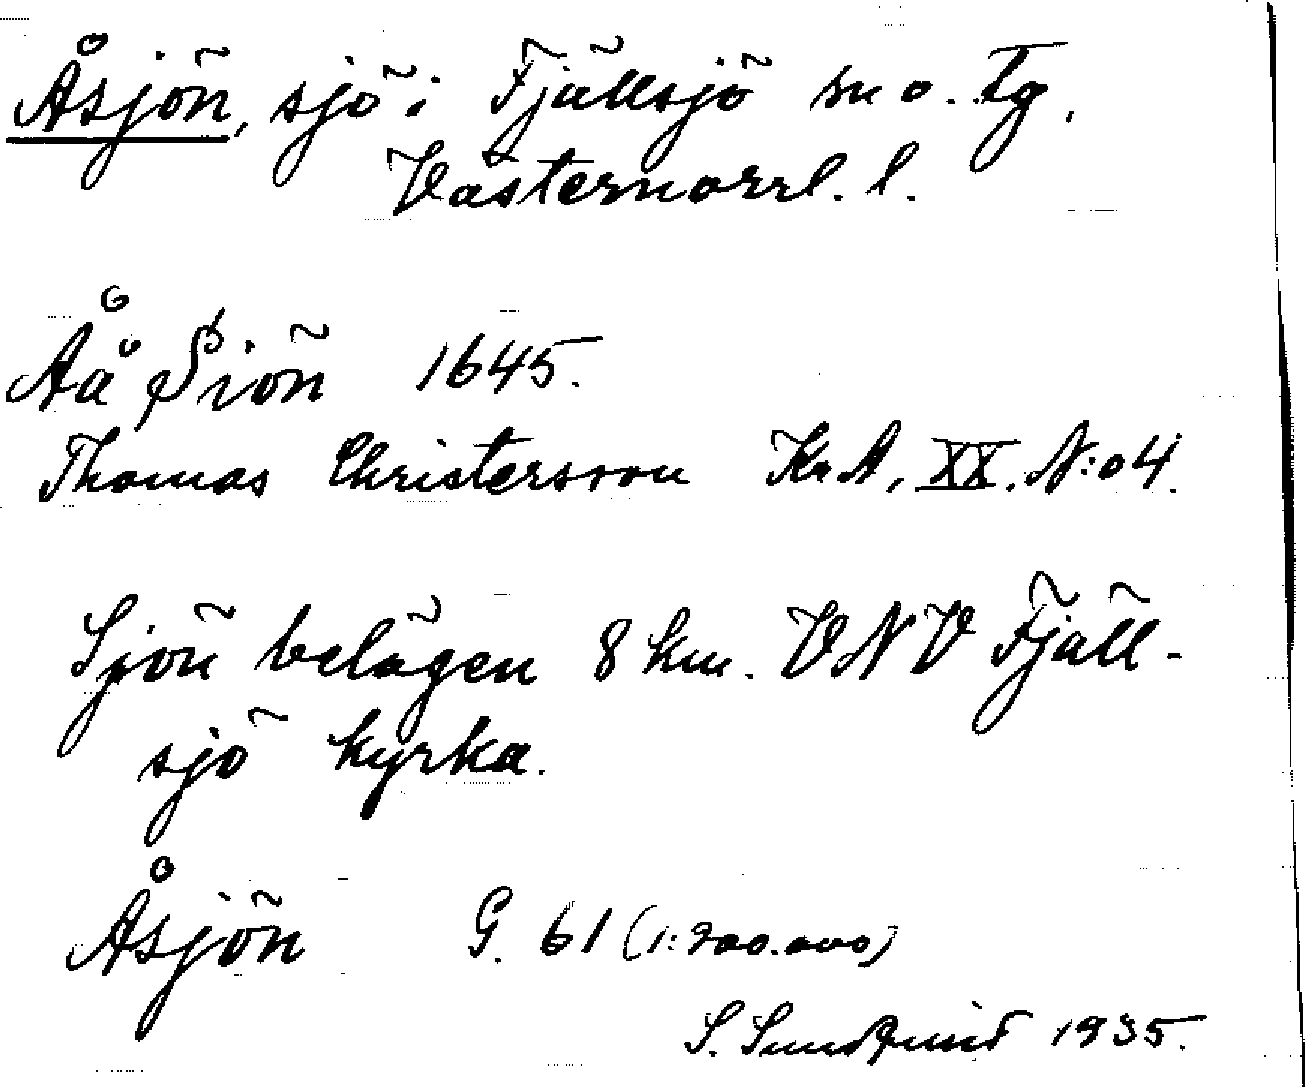 Åsjön, sjö i Fjällsjö sn o. Tg.
Västernorrl. l.
Åå Siön 1645.
Thomas Christersson KrA, XX. N:o 4.
Sjön belägen 8 km. VNV Fjäll-
sjö kyrka.
Åsjön G. 61 (1:200.000)
S. 1935.